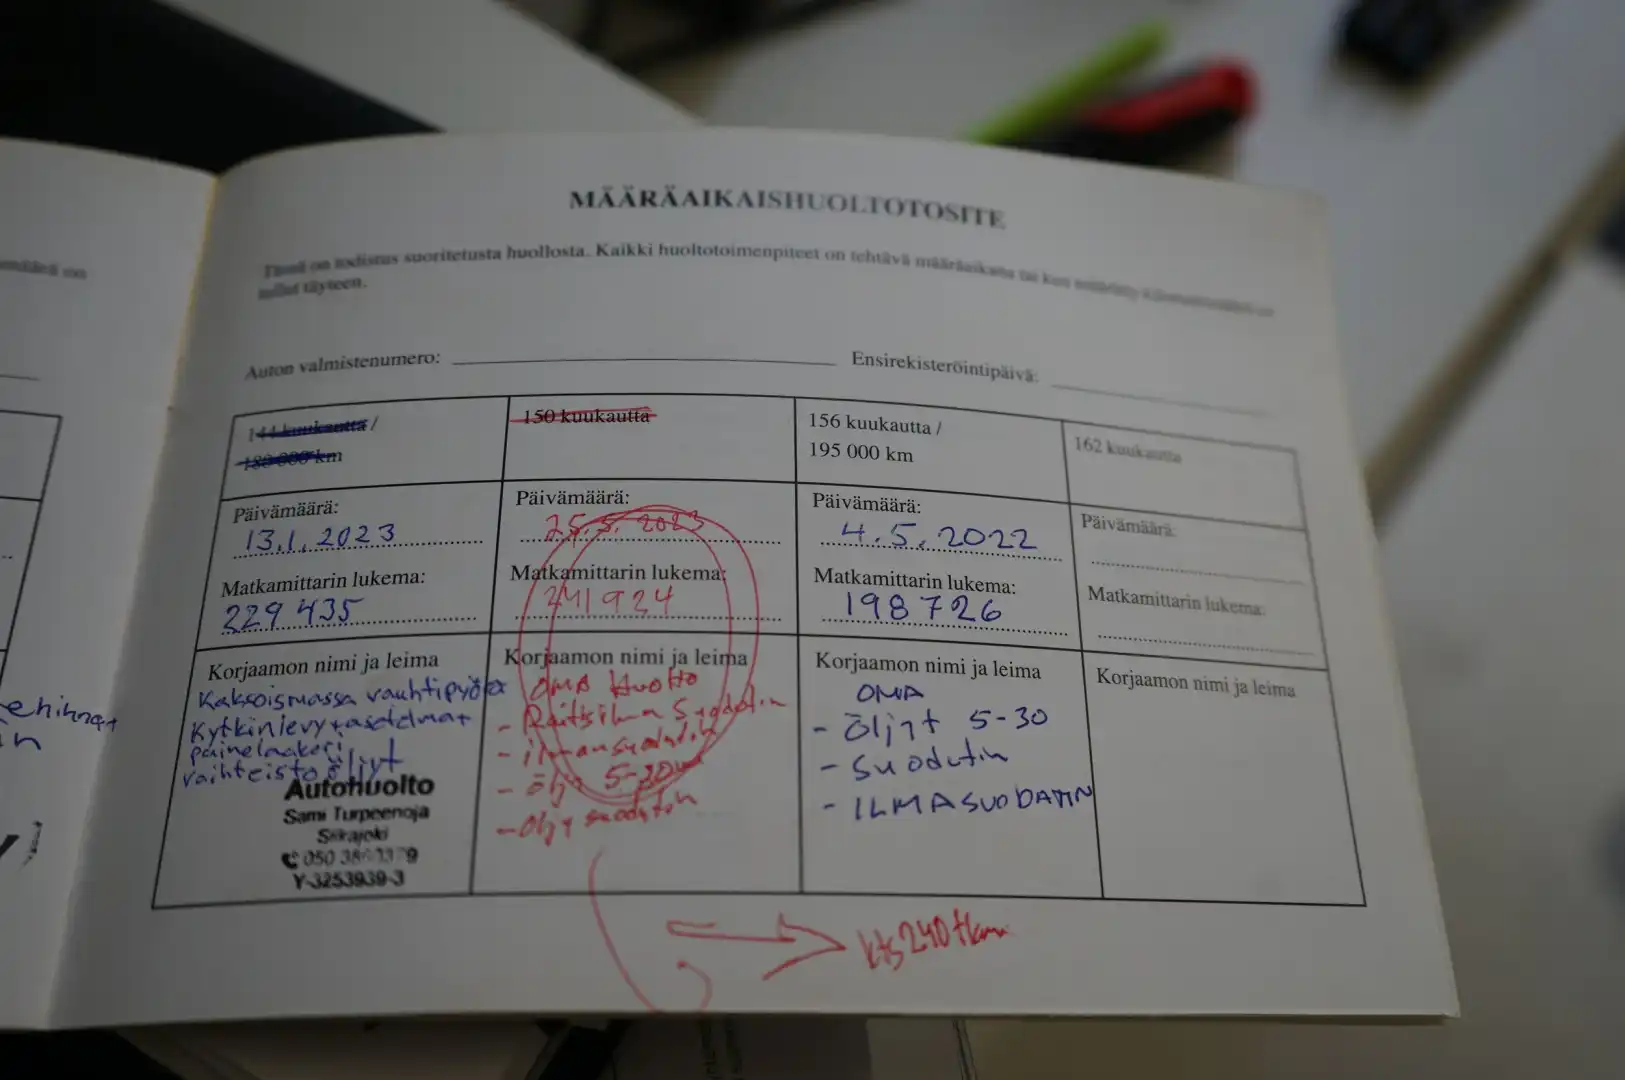 MÄÄRÄAIKAISHUOLTOTOSITE
Tämä on todistus suoritetusta huollosta. Kaikki huoltotoimenpiteet on tehtävä määräaikana tai kun määrätty kilometrimäärä on
tullut täyteen.
Auton valmistenumero:
Ensirekisteröintipäivä:
144 kuukautta /
180 000 km
Päivämäärä:
13.1.2023
Matkamittarin lukema:
229 435
Korjaamon nimi ja leima
Kaksoismassa vauhtipyörä
Kytkinlevy + asetelma +
painelaakeri
vaihteisto öljyt
Autohuolto
Sami Turpeenoja
Siikajoki
Y-3253939-3
150 kuukautta
Päivämäärä:
25.5.2023
Matkamittarin lukema:
241 924
Korjaamon nimi ja leima
OMA Huolto
- Raitisilma Suodatin
- ilmansuodatin
- öljy 5-30
- öljy suodatin
156 kuukautta /
195 000 km
Päivämäärä:
4.5.2022
Matkamittarin lukema:
198 726
Korjaamon nimi ja leima
OMA
- Öljyt 5-30
- Suodatin
- ILMASUODATIN
162 kuukautta
Päivämäärä:
Matkamittarin lukema:
Korjaamon nimi ja leima
kts 240 tkm